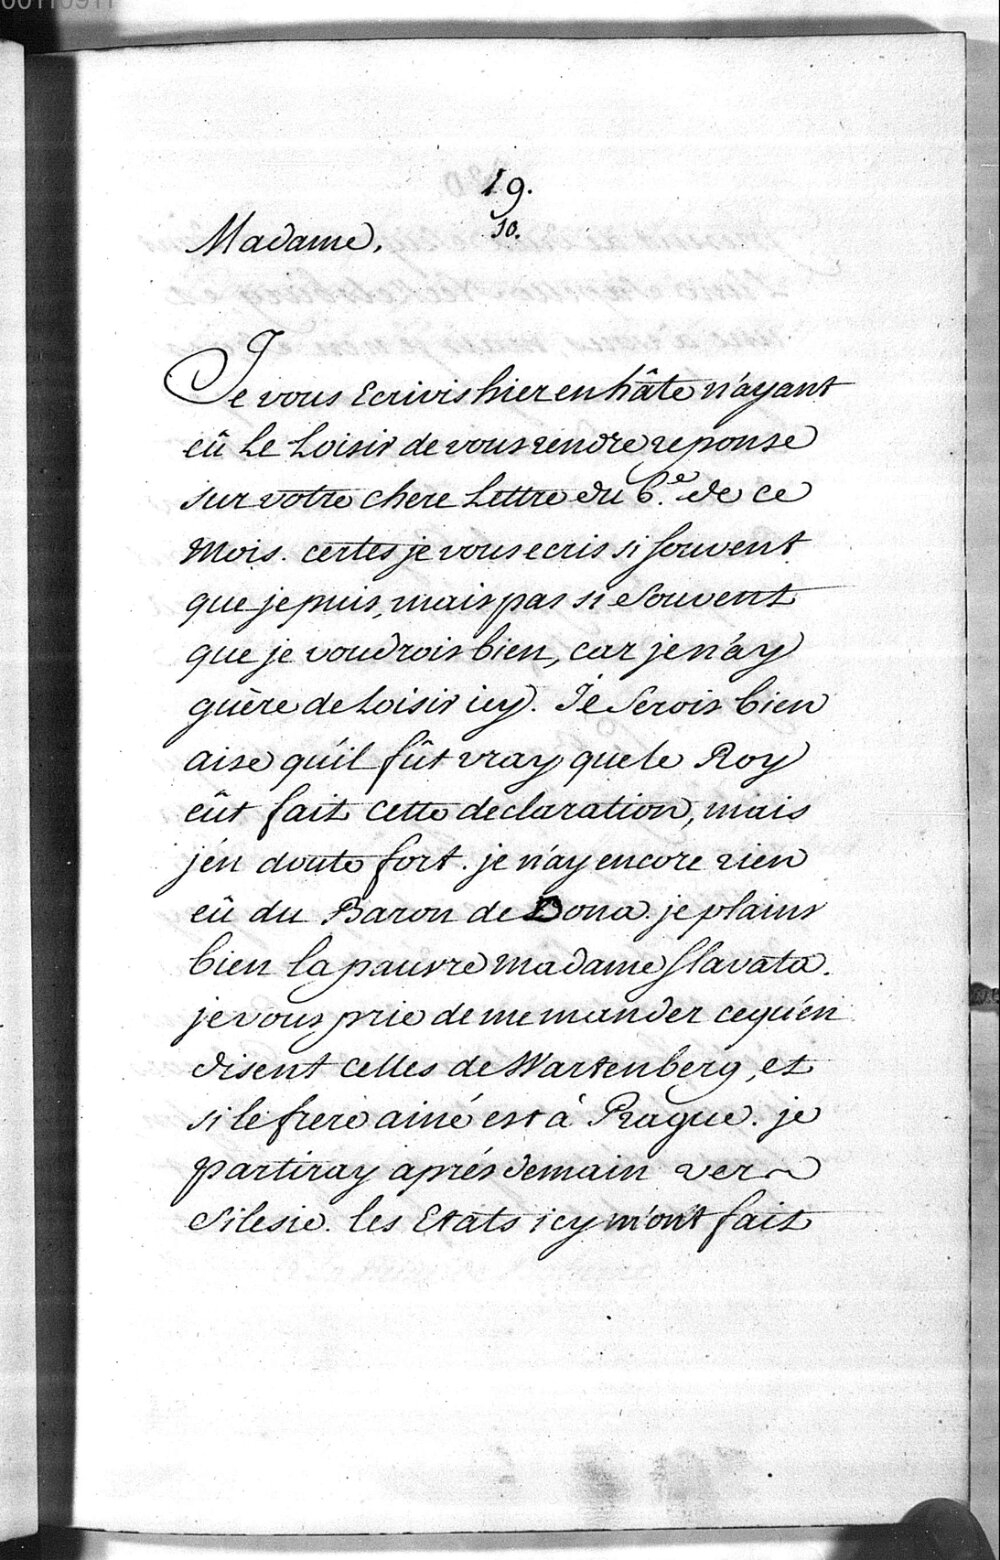 00110911
19.
10.
Madame,
Je vous Ecrivis hier en hâte n'ayant
eû Le Loisir de vous rendre reponse
sur votre chere Lettre du 6.e de ce
Mois. certes je vous ecris si souvent
que je puis, mais pas si souvent
que je voudrois bien, car je n'ay
guère de Loisir icy. Je serois bien
aise qu'il fût vray que le Roy
eût fait cette declaration, mais
j'en doute fort. je n'ay encore rien
eû du Baron de Dona. je plains
bien la pauvre madame slavata.
je vous prie de me mander ce qu'en
disent celles de Wartenberg, et
si le frere ainé est à Prague. je
partiray aprés demain vers
Silesie. les Etats icy m'ont fait